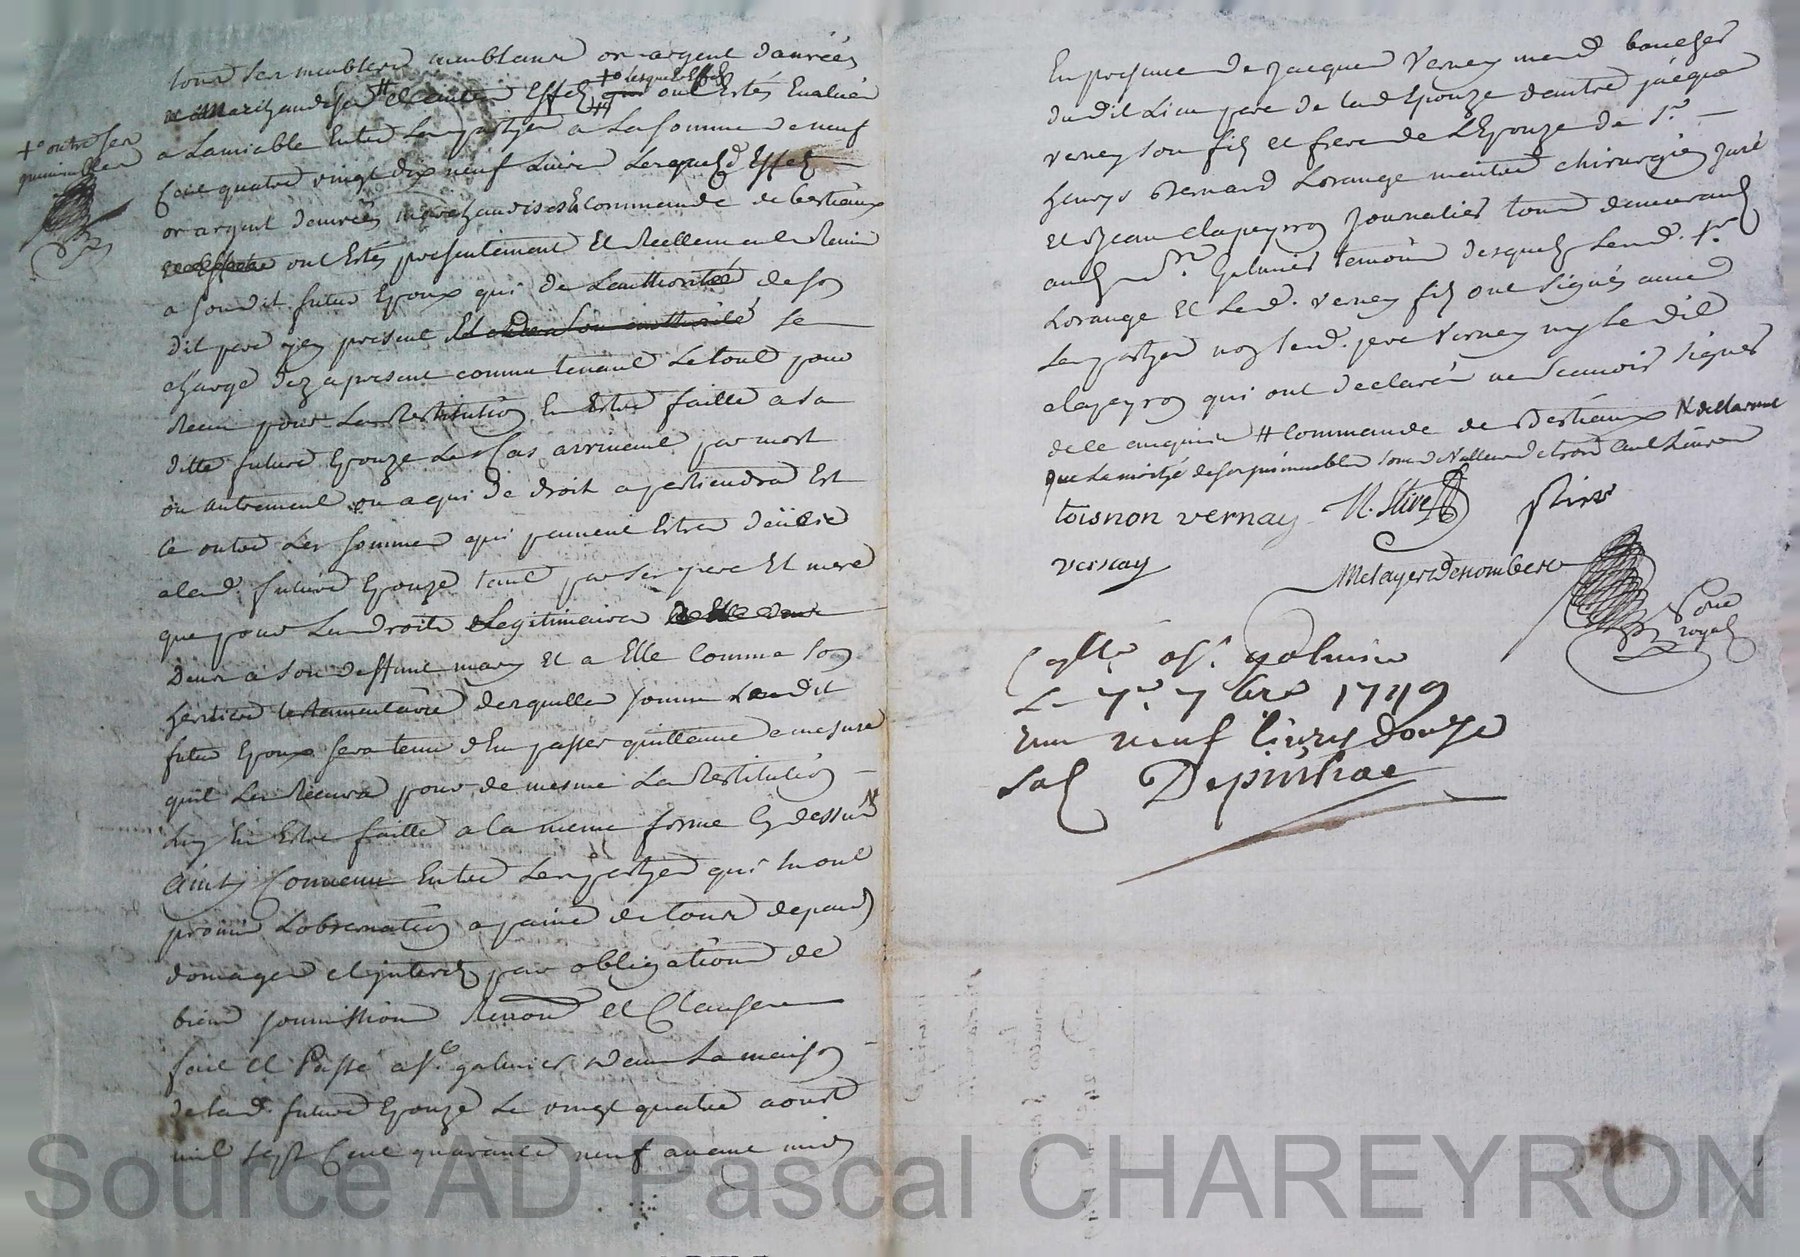 tous ses meubles meublans or argent danrées
et Marchandises # et autres Effets +o lesquels Effets # qui ont Estés Evalués
a Lamiable Entre Les partyes a La somme de neuf
Cent quatre vingt dix neuf Livres Lesquels Effets
or argent danrées marchandises & Commande de bestiaux
ont Estés presentement Et Reellement Remis
a son dit futur Epoux qui de Lauthorité de son
dit pere y en present Et de son authorité se
charge dez apresent comme tenant Le tout pour
Receu pour La Restitution En Estre faitte a sa
ditte future Epouze Le Cas arrivant par mort
ou autrement ou a qui de droit apartiendra Est
Ce outre Les sommes qui peuvent Estre deües
a lad. future Epouze tant par ses pere Et mere
que pour Les droits Legitimaires
Deus a son deffunt mary Et a Elle Comme son
heritiere testamentaire desquelles sommes Ledit
futur Epoux sera tenu d'En passer quittance a mesure
quil Les Recevra pour de mesme La Restitution
Luy En Estre faitte a la meme forme Cy dessus
Ainsy Convenu Entre Les partyes qui En ont
promis Lobservation a peine de tous depends
domages et interets par obligations de
biens soumissions Renons et Clauses
fait et Passé a St. galmier dans La maison
de lad. future Epouze Le vingt quatre aoust
mil sept Cent quarante neuf avant midy
+o outre ses
pierimables
En presence de Jacques Verney mend boucher
du dit Lieu pere de lad Epouze dautre jacque
verney son fils et frere de LEpouze de Sr.
henrys Bernard Lorange maitre chirurgien juré
Et Jean Clapeyron Journalier tous demeurants
aud St. Galmier temoins desquels Lend. Sr.
Lorange Et Led. verney fils ont signés avec
Les partyes non Led. pere Verney ny Le dit
clapeyron qui ont declarés ne scavoir signer
de ce enquis # Commande de Bestiaux N declarant
que La moitié de ses pmimeubles sont de Valleur de trois Cent Livres
toisnon vernay M. Stive Stive
vernay
Metayer Denombere
Nore
royal
Coll. a St. galmier
Le 7e. 7bre 1749
Reçu neuf livres douze
sols Depinhac
Source AD Pascal CHAREYRON